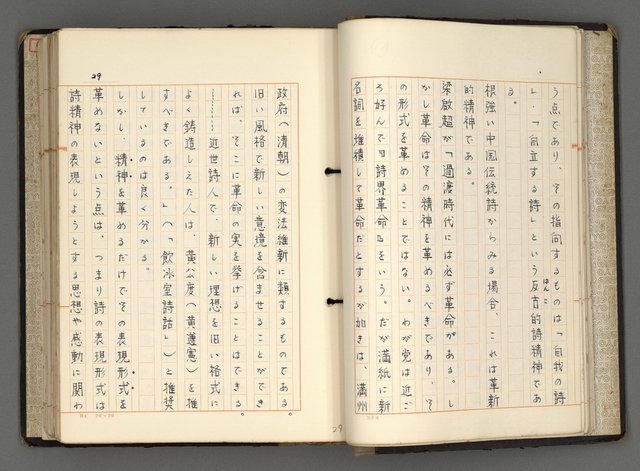 う点であり、その指向するものは「自我の詩
」・「自立する詩」という反古的詩精神であ
る。
根強い中国伝統詩からみる場合、これは革新
的精神である。
梁啟超が「過渡時代には必ず革命がある。し
かし革命はその精神を革めるべきであり、そ
の形式を革めることではない。わが党は近ご
ろ好んで『詩界革命』をいう。だが満紙に新
名詞を堆積して革命だとするが如きは、満州
政府(清朝)の変法維新に類するものである。
旧い風格で新しい意境を含ませることができ
れば、そこに革命の実を挙げることはできる。
………近世詩人で、新しい理想を旧い格式に
よく鋳造しえた人は、黄公度(黄遵憲)を推
すべきである。」(「飲冰室詩話」)と推奨
しているのは良く分かる。
しかし、精神を革めるだけでその表現形式を
革めないという点は、つまり詩の表現形式は
詩精神の表現しようとする思想や感動に関わ
29
29